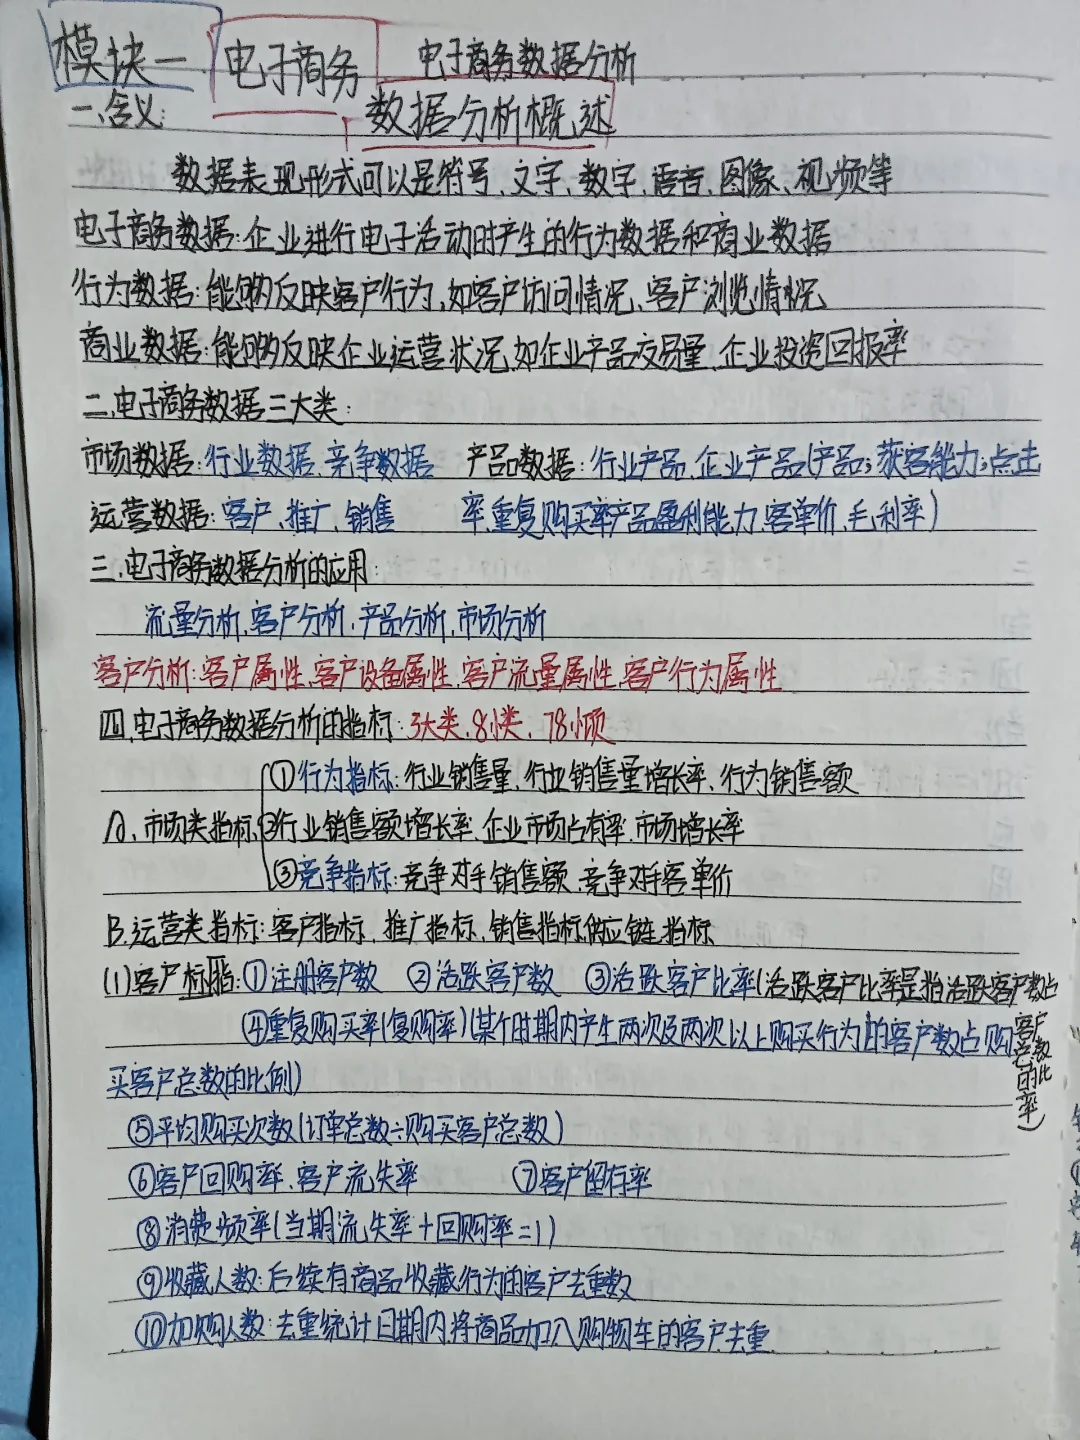 模块一 电子商务 电子商务数据分析
一、含义: 数据分析概述
数据表现形式可以是符号、文字、数字、语音、图像、视频等
电子商务数据:企业进行电子活动时产生的行为数据和商业数据
行为数据:能够反映客户行为,如客户访问情况、客户浏览情况
商业数据:能够反映企业运营状况,如企业产品交易量、企业投资回报率
二、电子商务数据三大类:
市场数据:行业数据、竞争数据 产品数据:行业产品、企业产品(产品:获客能力:点击
运营数据:客户、推广、销售 率、重复购买率产品盈利能力、客单价、毛利率)
三、电子商务数据分析的应用:
流量分析、客户分析、产品分析、市场分析
客户分析:客户属性、客户设备属性、客户流量属性、客户行为属性
四、电子商务数据分析的指标:3大类、8小类、78小项
①行为指标:行业销售量、行业销售量增长率、行为销售额
A、市场类指标 ②行业销售额增长率、企业市场占有率、市场增长率
③竞争指标:竞争对手销售额、竞争对手客单价
B.运营类指标:客户指标、推广指标、销售指标、供应链指标
(1)客户标指:①注册客户数 ②活跃客户数 ③活跃客户比率(活跃客户比率是指活跃客户数占
客户总数的比率)
④重复购买率(复购率)(某个时期内产生两次及两次以上购买行为的客户数占购
买客户总数的比例)
⑤平均购买次数(订单总数÷购买客户总数)
⑥客户回购率、客户流失率 ⑦客户留存率
⑧消费频率(当期流失率+回购率=1)
⑨收藏人数:后续有商品收藏行为的客户去重数
⑩加购人数:去重统计日期内将商品加入购物车的客户去重